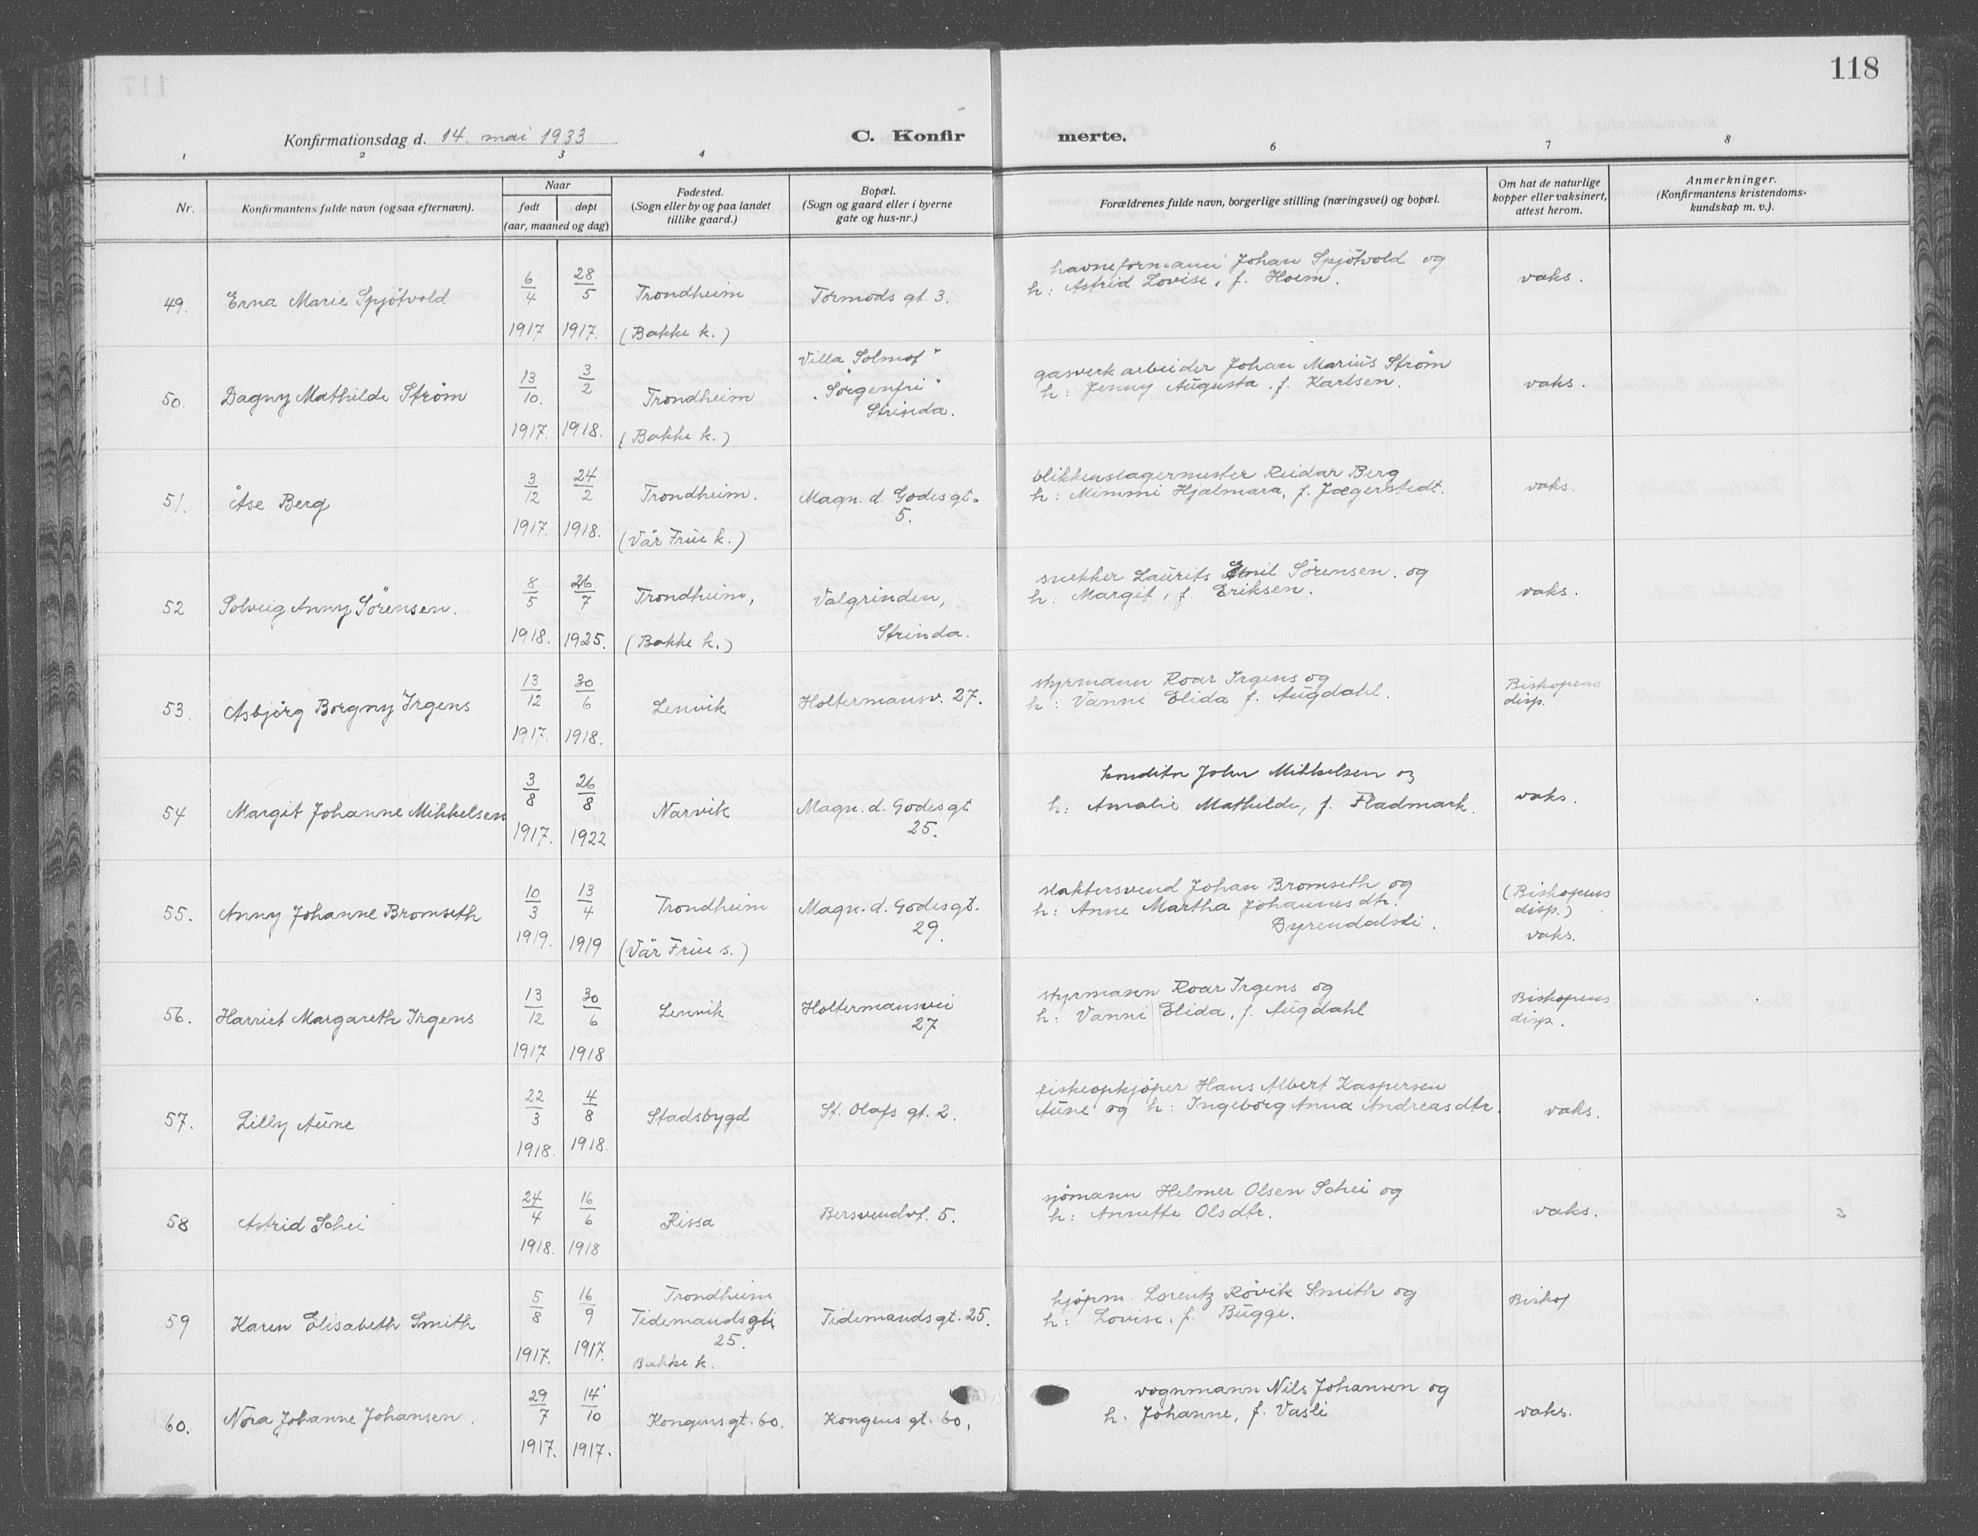 118
Konfirmationsdag d. 14. mai 1933
C. Konfir merte.
1 2 3 4 6 7 8
Nr.
Konfirmantens fulde navn (ogsaa efternavn).
Naar
født døpt
(aar, maaned og dag)
Fødested.
(Sogn eller by og paa landet
tillike gaard.)
Bopæl.
(Sogn og gaard eller i byerne
gate og hus-nr.)
Forældrenes fulde navn, borgerlige stilling (næringsvei) og bopæl.
Om hat de naturlige
kopper eller vaksinert,
attest herom.
Anmerkninger.
(Konfirmantens kristendoms-
kundskap m. v.).
49. Erna Marie Spjøtvold
6/4 1917
28/5 1917.
Trondheim
(Bakke k.)
Tormods gt. 3.
havneformann Johan Spjøtvold og
h: Astrid Lovise, f. Hoem.
vaks.
50. Dagny Mathilde Strøm
13/10. 1917.
3/2 1918.
Trondheim
(Bakke k.)
Villa "Solmof"
"Sorgenfri"
Strinda.
gasverkarbeider Johan Marius Strøm
h: Jenny Augusta, f. Karlsen.
vaks.
51. Åse Berg
3/12 1917.
24/2 1918.
Trondheim.
(Vår Frue k.)
Magn. d. Godes gt.
5.
blikkenslagermester Reidar Berg
h: Mimmi Hjalmara, f. Jægerstedt.
vaks.
52 Solveig Anny Sørensen.
8/5 1918.
26/7 1925.
Trondheim,
(Bakke k.)
Valgrinden,
Strinda.
snekker Laurits Emil Sørensen. og
h: Margit, f. Eriksen.
vaks.
53. Asbjørg Borgny Irgens
13/12 1917.
30/6 1918.
Lenvik
Holtermansv. 27.
styrmann Roar Irgens og
h: Vanni Elida f. Augdahl.
Biskopens
disp.
54 Margit Johanne Mikkelsen
3/8 1917.
26/8 1922
Narvik
Magn. d. Godes gt
25.
konditor John Mikkelsen og
h: Amalie Mathilde, f. Fladmark.
vaks.
55. Anny Johanne Bromseth
10/3 1919.
13/4 1919
Trondheim
(Vår Frue s.)
Magn. d. Godes gt.
29.
slaktersvend Johan Bromseth og
h: Anne Martha Johannesdtr.
Dyrendalsli.
(Biskopens
disp.)
vaks.
56. Harriet Margareth Irgens
13/12 1917
30/6 1918
Lenvik
Holtermansvei
27
styrmann Roar Irgens og
h: Vanni Elida, f. Augdahl
Biskopens
disp.
57. Lilly Aune
22/3 1918.
4/8 1918.
Stadsbygd
St. Olafs gt. 2.
fiskeopkjøper Hans Albert Kaspersen
Aune og h: Ingeborg Anna Andreasdtr.
vaks.
58 Astrid Schei
24/4 1918.
16/6 1918
Rissa
Bersvendvf. 5.
sjømann Helmer Olsen Schei og
h: Annette Olsdtr.
vaks.
59 Karen Elisabeth Smith
5/8 1917.
16/9 1917.
Trondheim
Tidemandsgt.
25.
Bakke k.
Tidemandsgt. 25.
kjøpm. Lorentz Røvik Smith og
h: Lovise, f. Bugge.
Biskop
60. Nora Johanne Johansen.
29/7 1917.
14/10 1917.
Kongens gt. 60.
Kongens gt. 60,
vognmann Nils Johansen og
h. Johanne, f. Vasli
vaks.